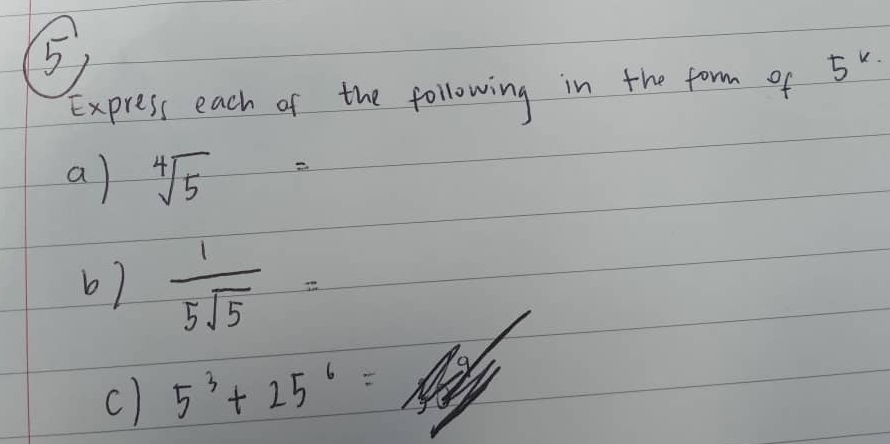 5,
Express each of the following in the form of 5ᵏ.
a) ⁴√5 =
b) 1/5√5 =
c) 5³ + 25⁶ =